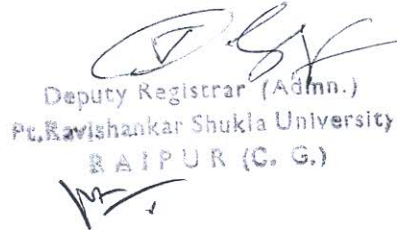 Deputy Registrar (Admn.)
Pt.Ravishankar Shukla University
RAIPUR (C. G.)